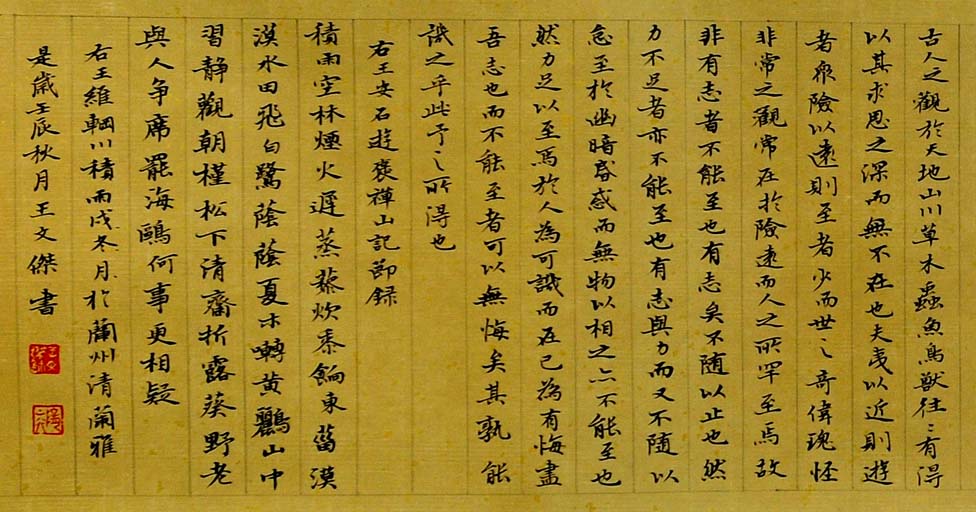 古人之觀於天地山川草木蟲魚鳥獸往〻有得
以其求思之深而無不在也夫夷以近則遊
者衆險以遠則至者少而世之奇偉瑰怪
非常之觀常在於險遠而人之所罕至焉故
非有志者不能至也有志矣不隨以止也然
力不足者亦不能至也有志與力而又不隨以
怠至於幽暗昏惑而無物以相之亦不能至也
然力足以至焉於人為可譏而在己為有悔盡
吾志也而不能至者可以無悔矣其孰能
譏之乎此予之所得也
右王安石遊褒禪山記節錄
積雨空林煙火遲蒸藜炊黍餉東菑漠
漠水田飛白鷺蔭蔭夏木囀黃鸝山中
習靜觀朝槿松下清齋折露葵野老
與人爭席罷海鷗何事更相疑
右王維輞川積雨戌冬月於蘭州清蘭雅
是歲壬辰秋月王文傑書